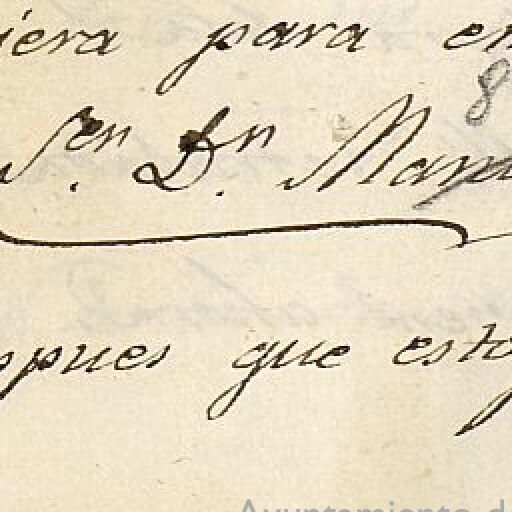 iera para en
8
S.en D.n Man
spues que estoy
Ayuntamiento de